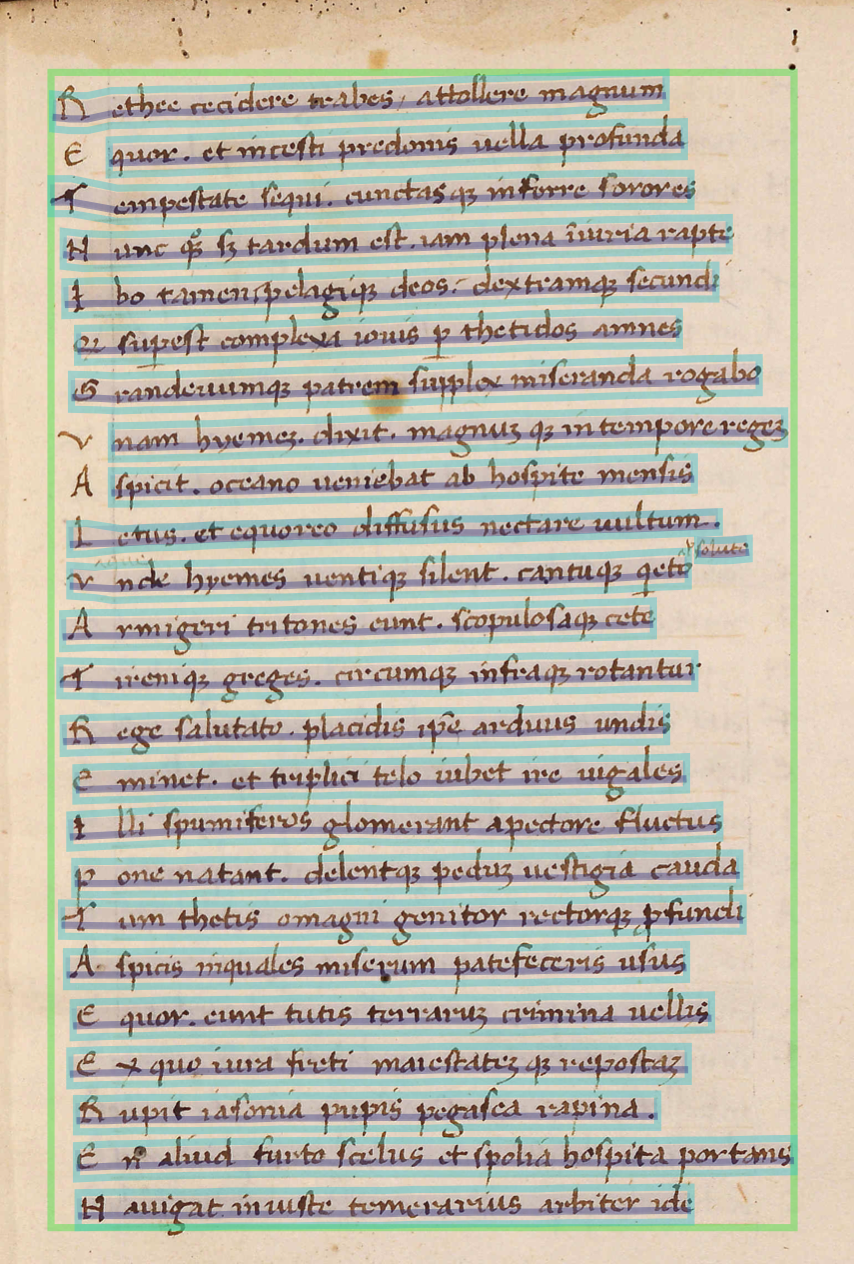 R ethee cecidere trabes, attollere magnum
E quor. et incesti predonis uella profunda
T empestate sequi. cunctasqꝫ inferre sorores
N unc qͣꝫ sꝫ tardum est. iam plena iniuria rapte
I bo tamen, pelagiqꝫ deos. dextramqꝫ secundi
Q suꝑest complexa iouis ꝑ thetidos amnes
G randeuumqꝫ patrem supplex miseranda rogabo
V nam hyemeꝫ. dixit. magnuꝫ qꝫ in tempore regeꝫ
A spicit. oceano ueniebat ab hospite mensis
L etus. et equoreo diffusus nectare uultum.
soluto
V nde hyemes uentiqꝫ silent. cantuqꝫ qeto
A rmigeri tritones eunt. scopulosaqꝫ cete
T ireniqꝫ greges. circumqꝫ infraqꝫ rotantur
R ege salutato. placidis ip̄e arduus undis
E minet. et triplici telo iubet ire uigales
I lli spumiferos glomerant a pectore fluctus
P one natant. delentqꝫ peduꝫ uestigia cauda
T um thetis o magni genitor rectorqꝫ ꝓfundi
A spicis in quales miserum patefeceris usus
E quor. eunt tutis terraruꝫ crimina uellis
E x quo iura freti maiestateꝫ qꝫ repostaꝫ
R upit iasonia pupis pegasea rapina.
E n aliud furto scelus et spolia hospita portans
N auigat iniuste temerarius arbiter ide